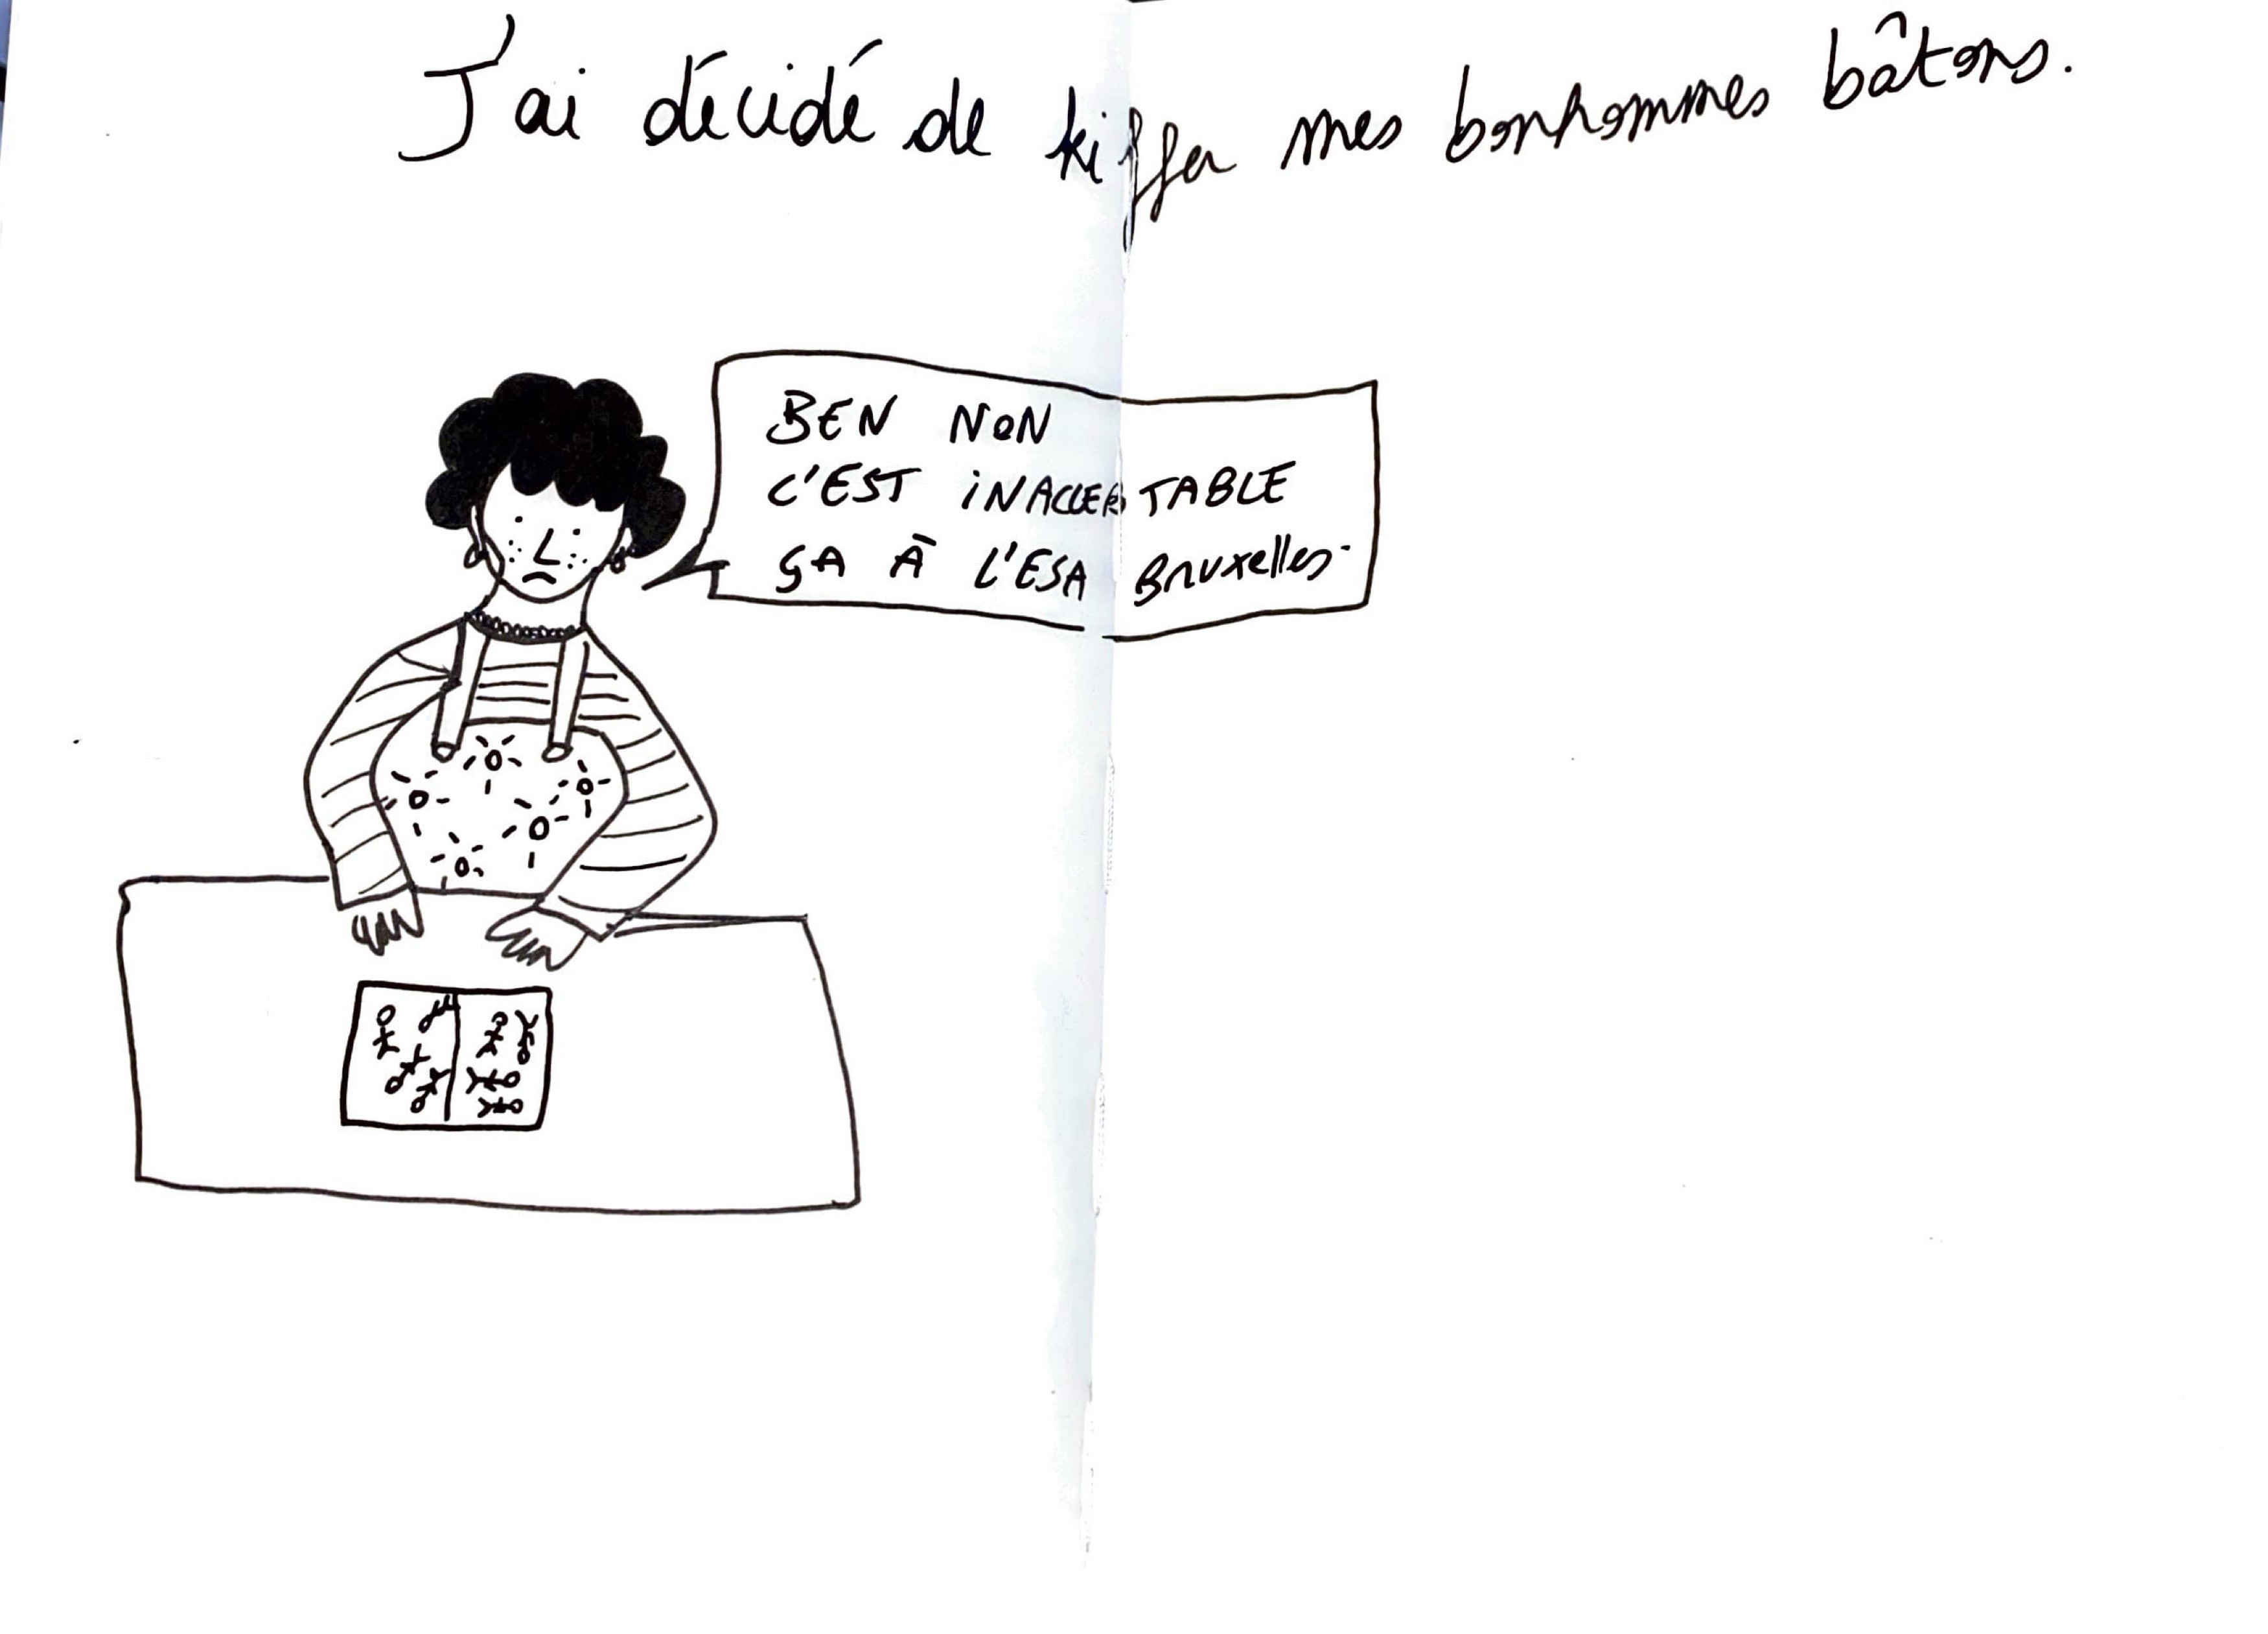 J'ai décidé de kiffer mes bonhommes bâtons.
BEN NON
C'EST INACCEPTABLE
ÇA À L'ESA Bruxelles.